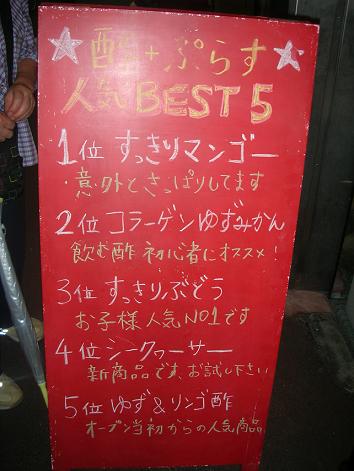 ★酢+ぷらす★
人気BEST5
1位 すっきりマンゴー
・意外とさっぱりしてます
2位 コラーゲンゆずみかん
飲む酢初心者にオススメ!
3位 すっきりぶどう
お子様人気NO1です
4位 シークヮーサー
新商品です、お試し下さい
5位 ゆず&リンゴ酢
オープン当初からの人気商品